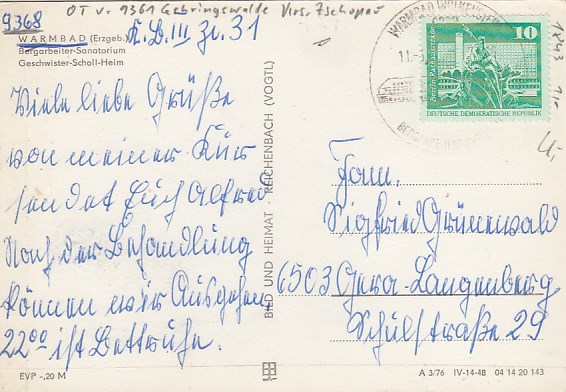 OT v. 9361 Gehringswalde Krs. Zschopau
9368
WARMBAD (Erzgeb.)
K.B. III Zi. 31
Bergarbeiter-Sanatorium
Geschwister-Scholl-Heim
WARMBAD WOLKENSTEIN
10
DEUTSCHE DEMOKRATISCHE REPUBLIK
Viele liebe Grüße
von meiner Kur
sendet Euch Alfred
Nach der Behandlung
können wir Ausgehen.
22 00 ist Bettruhe.
BILD UND HEIMAT · REICHENBACH (VOGTL)
Fam.
Sigfried Grünewald
6503 Gera-Langenberg
Schulstraße 29
EVP -,20 M
A 3/76 IV-14-48 04 14 20 143